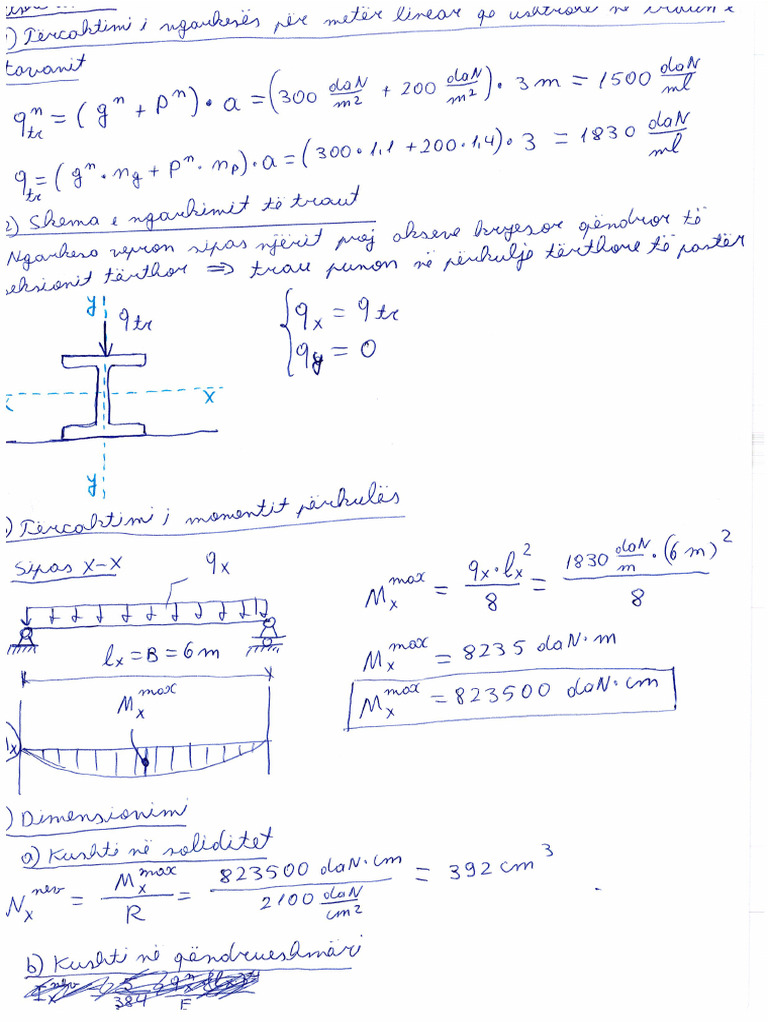 ) Tërcaktimi i ngarkesës për metër linear qe ushtrohe në traun e
tavanit
q^n_tr = (g^n + p^n) · a = (300 daN/m² + 200 daN/m²) · 3 m = 1500 daN/ml
q_tr = (g^n · n_g + p^n · n_p) · a = (300 · 1,1 + 200 · 1,4) · 3 = 1830 daN/ml
2) Skema e ngarkimit të traut
Ngarkesa vepron sipas njërit prej akseve kryesor qëndror të
seksionit tërthor ⇒ trau punon në përkulje tërthore të pastër
y
q_tr
{ q_x = q_tr
q_y = 0
x x
y
) Tërcaktimi i momentit përkulës
Sipas x-x
q_x
l_x = B = 6 m
M_x^max
M_x^max = q_x · l_x² / 8 = 1830 daN/m · (6 m)² / 8
M_x^max = 8235 daN · m
M_x^max = 823500 daN · cm
) Dimensionimi
a) Kushti në soliditet
N_x^nev = M_x^max / R = 823500 daN · cm / 2100 daN/cm² = 392 cm³
b) Kushti në qëndrueshmëri
384 E